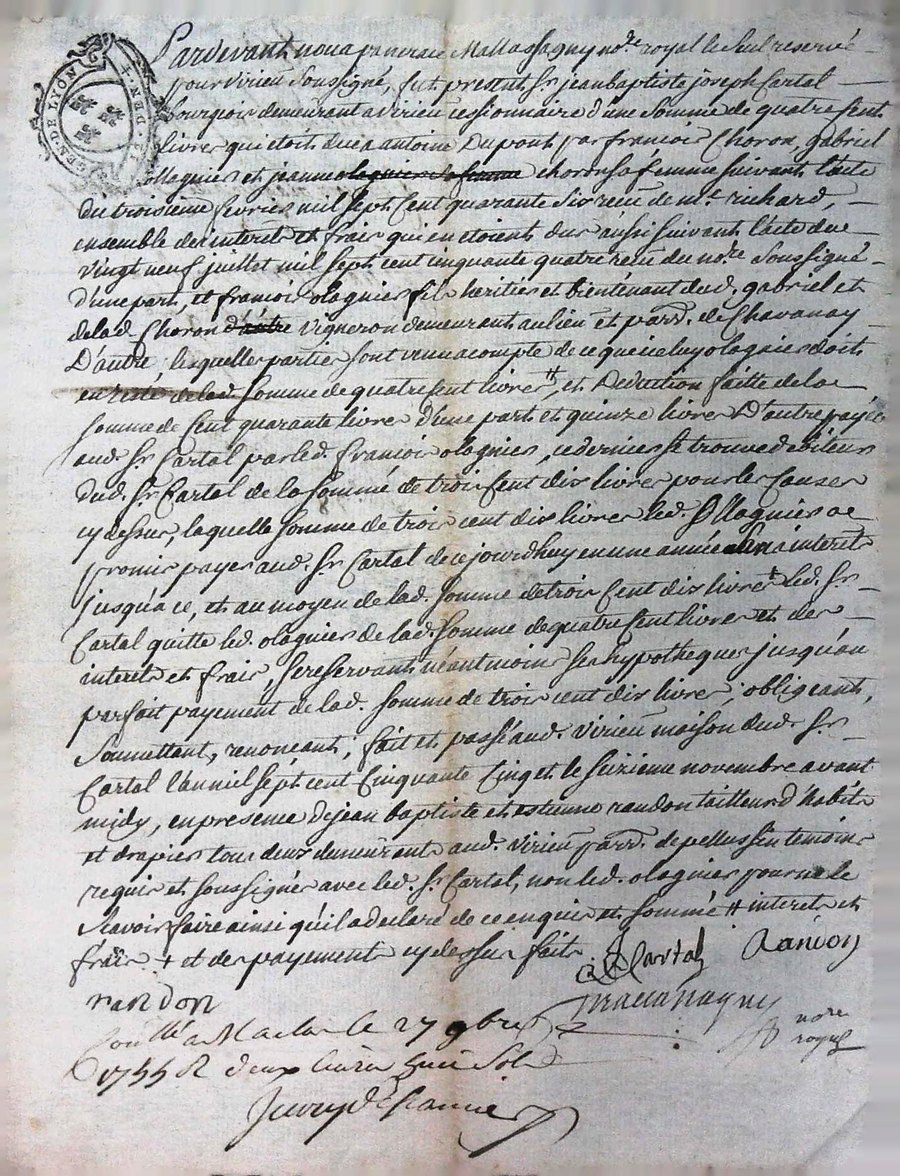 GEN. DE LYON
DEN. 4
ET
Pardevant nous pancrace Mallassagny no.re royal le seul reservé
pour virieu soussigné, fut present Sr jean baptiste joseph Cartal
bourgois demeurant a virieu cessionnaire d'une somme de quatre cent
livres qui etoit due a antoine Dupont par francois Choron, gabriel
ollagnier et jeanne olagnier sa femme choron sa femme suivant l'acte
du troisieme fevrier mil sept cent quarante six reçu de me. richard,
ensemble des interets et frais qui en etoient dus aussi suivant l'acte du
vingt neuf juillet mil sept cent cinquante quatre reçu du no.re soussigné
d'une part, et francois olagnier fils heritier et bientenant dud. gabriel et
de lad. Choron d'autre vigneron demeurant au lieu et parr. de Chavanay
D'autre, lesquelles parties sont venu a compte de ce que iceluy olagnier doit
en reste de lad. somme de quatre cent livres #, et Deduction faitte de la
somme de Cent quarante livres d'une part et quinze livres D'autre payée
aud. Sr Cartal par led. francois olagnier, ce dernier se trouve debiteur
dud. Sr Cartal de la somme de trois cent dix livres pour les causes
cy dessus, laquelle somme de trois cent dix livres led. Sr ollagnier a
promis payer aud. Sr Cartal de ce jourdhuy en une année sans interets
jusqu'a ce, et au moyen de lad. somme de trois Cent dix livres + led. Sr
Cartal quitte led. olagnier de lad. somme de quatre cent livres et des
interets et frais, se reservant néantmoins ses hypotheques jusqu'au
parfait payement de lad. somme de trois cent dix livres; obligeant,
soumettant, renonçant, fait et passé aud. virieu maison dud. Sr
Cartal l'an mil sept cent Cinquante Cinq et le seizieme novembre avant
midy, en presence de jean baptiste et estienne randon tailleur d'habits
et drapier tous deux demeurants aud. virieu parr. de pellussin temoins
requis et soussignés avec led. Sr Cartal, non led. olagnier pour ne le
scavoir faire ainsi qu'il a declaré de ce enquis et sommé # interets et
frais + et des payements cy dessus faits
Cartal Randon
randon
Mallassagny
no.re
royal
Conllé a Maclas le 27 9bre
1755 R deux livres huit sols